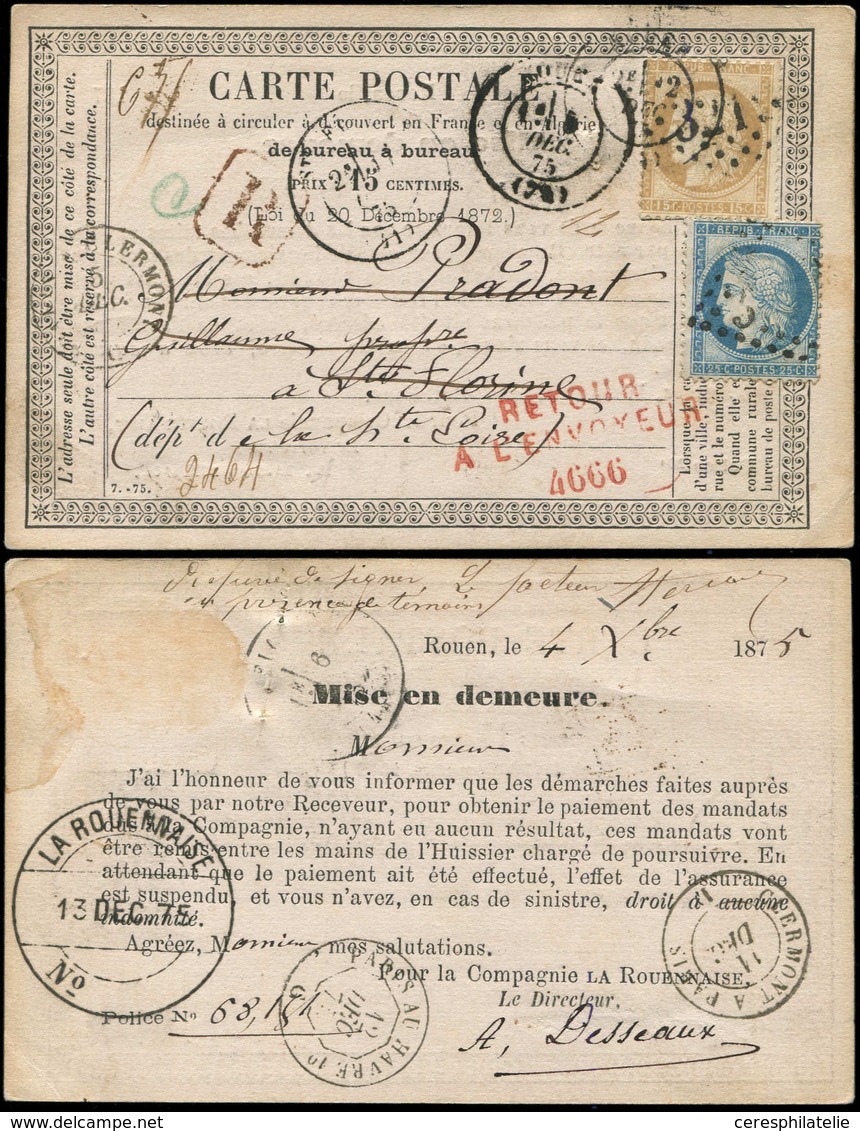 CARTE POSTALE
destinée à circuler à découvert en France et en Algérie
de bureau à bureau
PRIX 15 CENTIMES.
(Loi du 20 Décembre 1872.)
L'adresse seule doit être mise de ce côté de la carte.
L'autre côté est réservé à la correspondance.
R
DEC.
75
DEC
REPUB. FRANC.
15 C. POSTES 15 C.
REPUB. FRANC.
25 C. POSTES 25 C.
CLERMONT
DEC.
Monsieur Pradont
Guillaume propre
a Ste Florine
(dépt de la hte Loire)
RETOUR
A L'ENVOYEUR
4666
2464
7.-75.
Lorsque la ca
d'une ville, indi
rue et le numéro
Quand elle e
commune rurale
bureau de poste o
Refusé de signer Le facteur
en présence de témoins
Rouen, le 4 Xbre 1875
Mise en demeure.
Monsieur
J'ai l'honneur de vous informer que les démarches faites auprès
de vous par notre Receveur, pour obtenir le paiement des mandats
dus à la Compagnie, n'ayant eu aucun résultat, ces mandats vont
être remis entre les mains de l'Huissier chargé de poursuivre. En
attendant que le paiement ait été effectué, l'effet de l'assurance
est suspendu, et vous n'avez, en cas de sinistre, droit à aucune
indemnité.
Agréez, Monsieur mes salutations.
Pour la Compagnie LA ROUENNAISE,
Le Directeur,
A, Desseaux
Police No 68,181
LA ROUENNAISE
13 DEC. 75
No
PARIS AU HAVRE 1o
12
DEC
CLERMONT A PARIS
11
DEC
ceresphilatelie.com